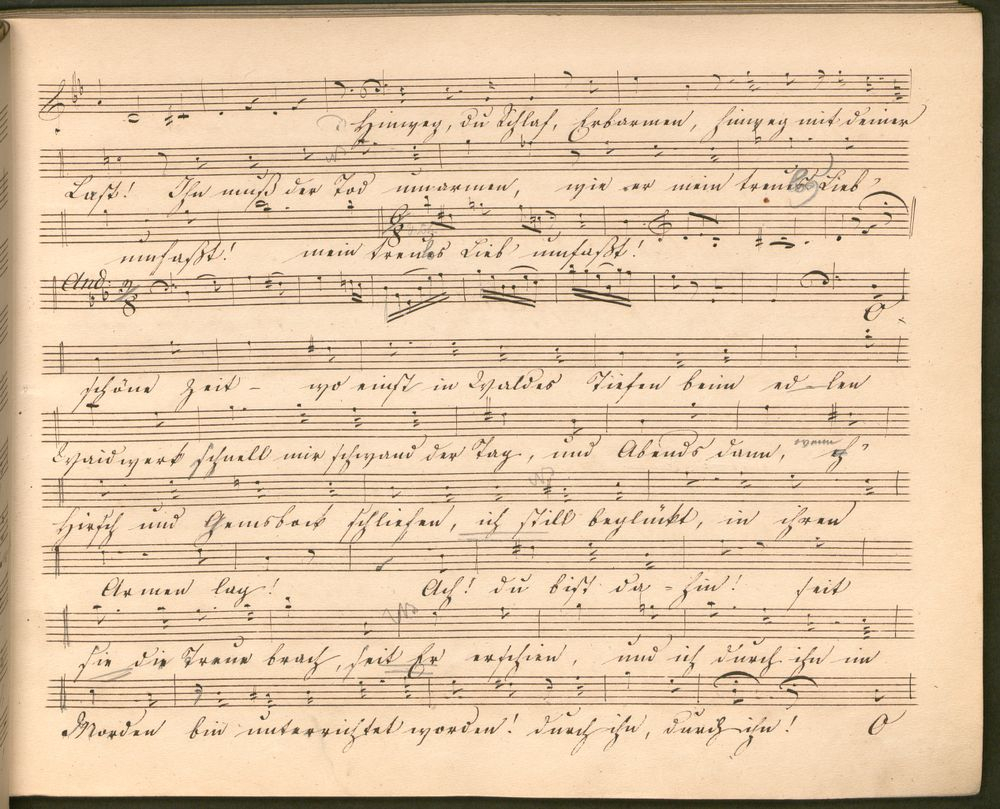 Hinweg, du Schlaf, Erbarmen, hinweg mit deiner
Last! Ihn muß der Tod umarmen, wie er mein treues Lieb
umfaßt! mein treues Lieb umfaßt!
And:
O
schöne Zeit – wo einst in Waldes Tiefen beim ed-len
Waidwerk schnell mir schwand der Tag, und Abends dann, wenn
Hirsch und Gemsbock schliefen, ich still beglückt, in ihren
Armen lag! Ach! du bist da-hin! seit
sie die Treue brach, seit Er erschien, und ich durch ihn im
Morden bin unterrichtet worden! durch ihn, durch ihn! O